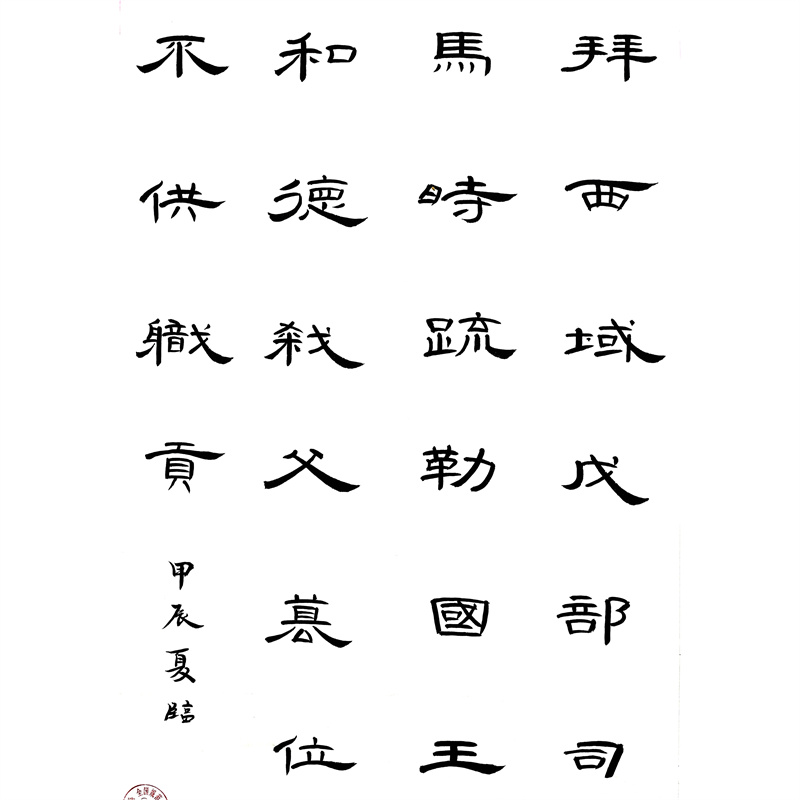 拜西域戊部司
馬時䟽勒國王
和德弒父篡位
不供軄貢
甲辰夏臨